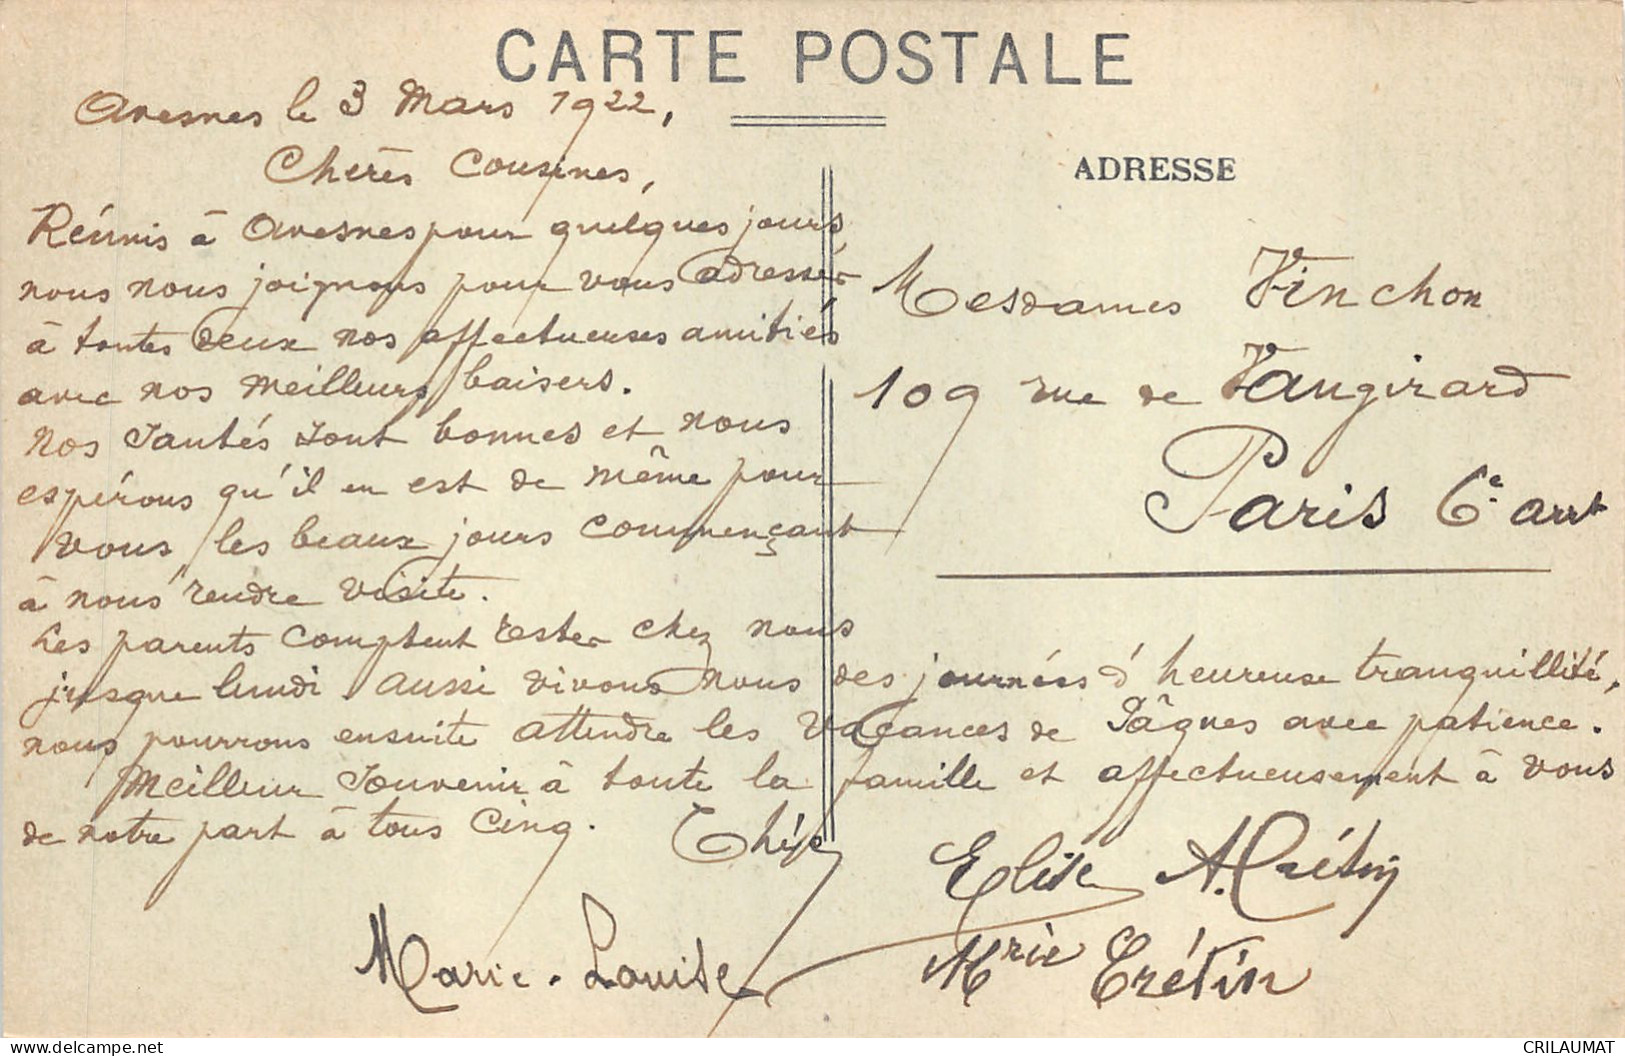 CARTE POSTALE
Avesnes le 3 Mars 1922,
Chères Cousines,
Réunis à Avesnes pour quelques jours
nous nous joignons pour vous adresser
à toutes deux nos affectueuses amitiés
avec nos meilleurs baisers.
Nos Santés sont bonnes et nous
espérons qu'il en est de même pour
vous, les beaux jours commençant
à nous rendre visite.
Les parents comptent rester chez nous
jusque lundi. Aussi vivons nous des journées d'heureuse tranquillité,
nous pourrons ensuite attendre les vacances de Pâques avec patience.
Meilleur Souvenir à toute la famille et affectueusement à vous
de notre part à tous Cinq.
Elise A. Crétin
Marie-Louise
Mrie Crétin
ADRESSE
Mesdames Vinchon
109 rue de Vaugirard
Paris 6e arrt
delcampe.net
CRILAUMAT